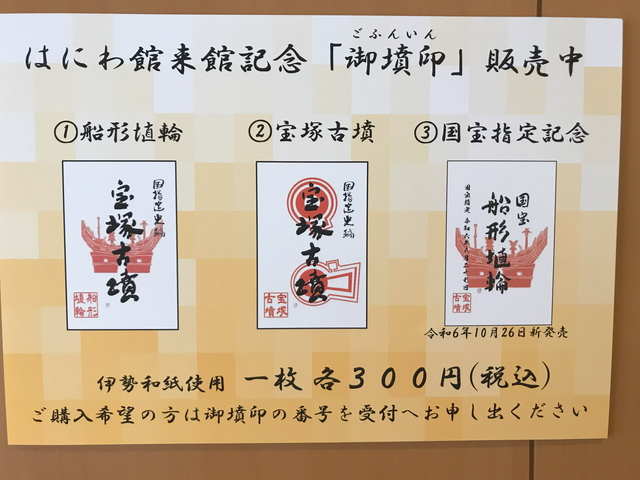 ごふんいん
はにわ館来館記念「御墳印」販売中
①船形埴輪
②宝塚古墳
③国宝指定記念
国指定史跡
宝塚古墳
船形
埴輪
国指定史跡
宝塚古墳
宝塚
古墳
国宝
船形埴輪
宝塚
古墳
令和6年10月26日新発売
伊勢和紙使用 一枚 各300円(税込)
ご購入希望の方は御墳印の番号を受付へお申し出ください